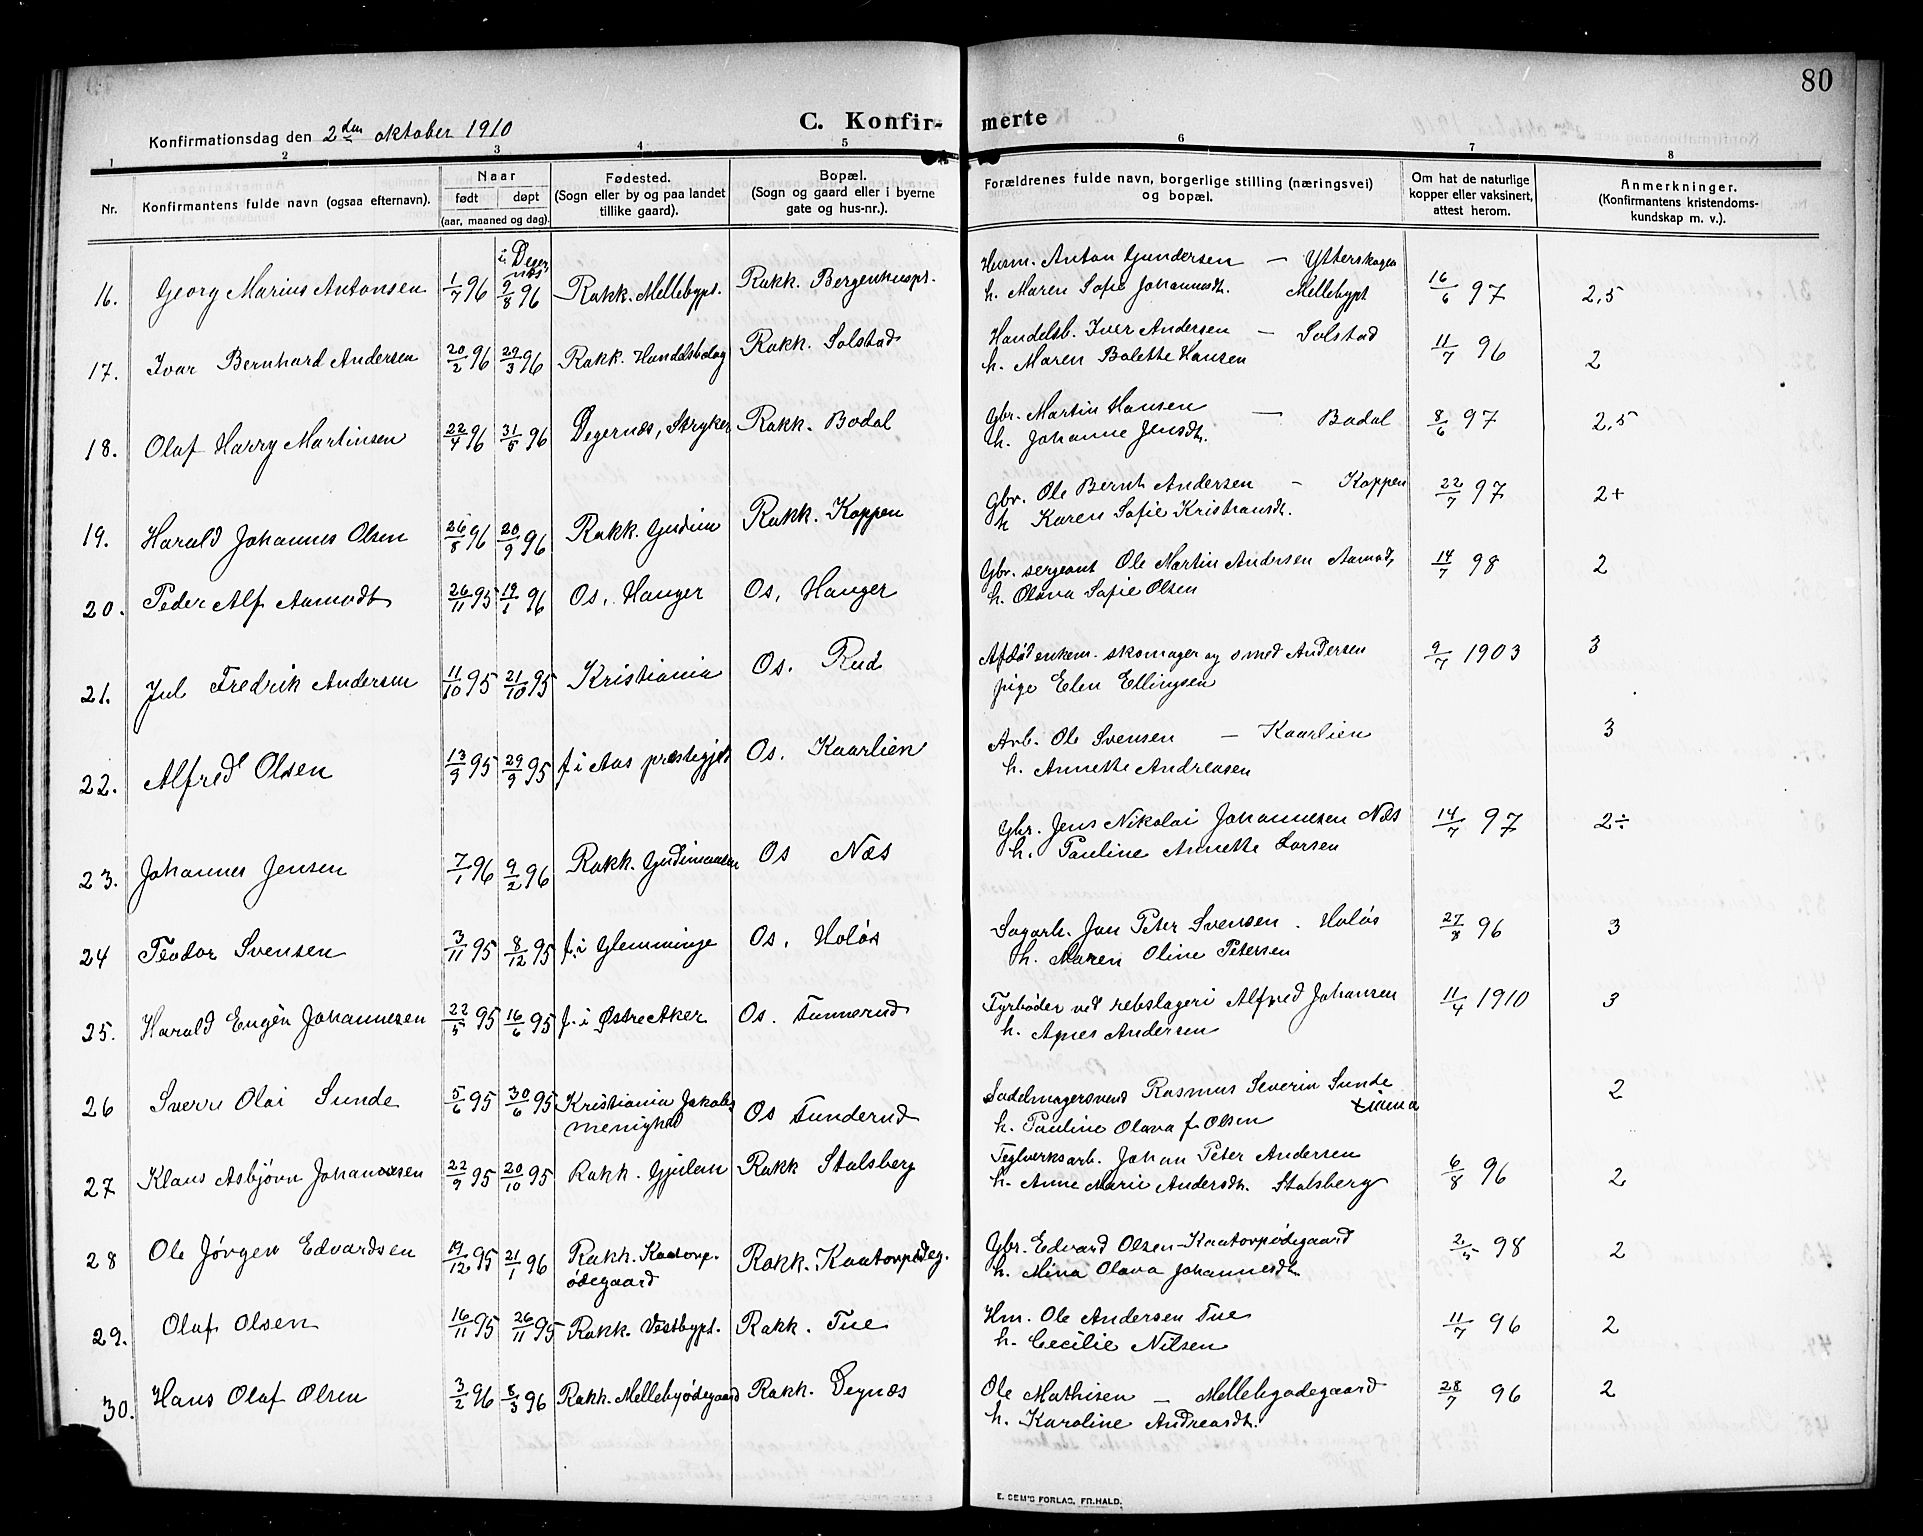 80
C. Konfirmerte
Konfirmationsdag den 2den oktober 1910
1 2 3 4 5 6 7 8
Nr. Konfirmantens fulde navn (ogsaa efternavn). Naar født døpt (aar, maaned og dag). Fødested. (Sogn eller by og paa landet tillike gaard). Bopæl. (Sogn og gaard eller i byerne gate og hus-nr.). Forældrenes fulde navn, borgerlige stilling (næringsvei) og bopæl. Om hat de naturlige kopper eller vaksinert, attest herom. Anmerkninger. (Konfirmantens kristendoms-kundskap m. v.).
16. Georg Marius Antonsen 1/7 96 i Degernes 9/8 96 Rakk. Mellebypt. Rakk. Bergenhuspt. Husm. Anton Gundersen — Ytterskogen 16/6 97 2,5
h. Maren Sofie Johannesdt. Mellebypt
17. Ivar Bernhard Andersen 20/2 96 29/3 96 Rakk. Handelsbolag Rakk. Solstad Handelsb. Iver Andersen — Solstad 11/7 96 2
h. Maren Bolette Hansen
18. Olaf Harry Martinsen 22/4 96 31/5 96 Degernæs, Stryker Rakk. Bodal Gbr. Martin Hansen — Bodal 8/6 97 2,5
h. Johanne Jensdt.
19. Harald Johannes Olsen 26/8 96 20/9 96 Rakk. Gudim Rakk. Koppen Gbr. Ole Bernt Andersen - Koppen 22/7 97 2+
h Karen Sofie Kristiansdt.
20. Peder Alf Aamodt 26/11 95 19/1 96 Os, Hanger Os, Hanger Gbr. sergeant Ole Martin Andersen Aamodt, 14/7 98 2
h. Olava Sofie Olsen
21. Jul Fredrik Andersen 11/10 95 21/10 95 Kristiania Os. Rud Afdød enkem. skomager og smed Andersen 9/7 1903 3
pige Elen Ellingsen
22. Alfred Olsen 13/9 95 29/9 95 f. i Aas præstegjeld Os. Kaarlien Arb. Ole Svensen — Kaarlien 3
h. Annette Andreasen
23. Johannes Jensen 7/1 96 9/2 96 Rakk. Gudimaasen Os Næs Gbr. Jens Nikolai Johannesen Næs 14/7 97 2÷
h. Pauline Annette Larsen
24 Teodor Svensen 3/11 95 8/12 95 f. i Glemminge Os. Holøs Sagarb. Jan Peter Svensen. Holøs 27/8 96 3
h. Maren Oline Petersen
25. Harald Eugén Johannesen 22/5 95 16/6 95 f. i Østre Aker Os. Tunnerud Fyrbøder ved rebslageri Alfred Johansen 11/4 1910 3
h. Agnes Andersen
26 Sverre Olai Sunde 5/6 95 30/6 95 Kristiania Jakobs menighed Os Tunderud Sadelmagersvend Rasmus Severin Sunde 2
h. Pauline Olava f. Olsen
27 Klaus Asbjørn Johannesen 22/9 95 20/10 95 Rakk. Gjulem Rakk Stalsberg Teglverksarb. Johan Peter Andersen 6/8 96 2
h. Anne Marie Andersdt. Stalsberg
28 Ole Jørgen Edvardsen 19/12 95 21/1 96 Rakk. Kaatorp-ødegaard Rakk. Kaatorpødeg. Gbr. Edvard Olsen - Kaatorpødegaard 2/5 98 2
h. Mina Olava Johannesdt.
29. Olaf Olsen 16/11 95 26/11 95 Rakk. Vestbypt. Rakk. Tue Hm. Ole Andersen Tue 11/7 96 2
h. Cecilie Nilsen
30. Hans Olaf Olsen 3/2 96 8/3 96 Rakk. Mellebyødegaard Rakk. Degnæs Ole Mathisen — Mellebyødegaard 28/7 96 2
h. Karoline Andreasdt.
E. SEM'S FORLAG, FR.HALD.